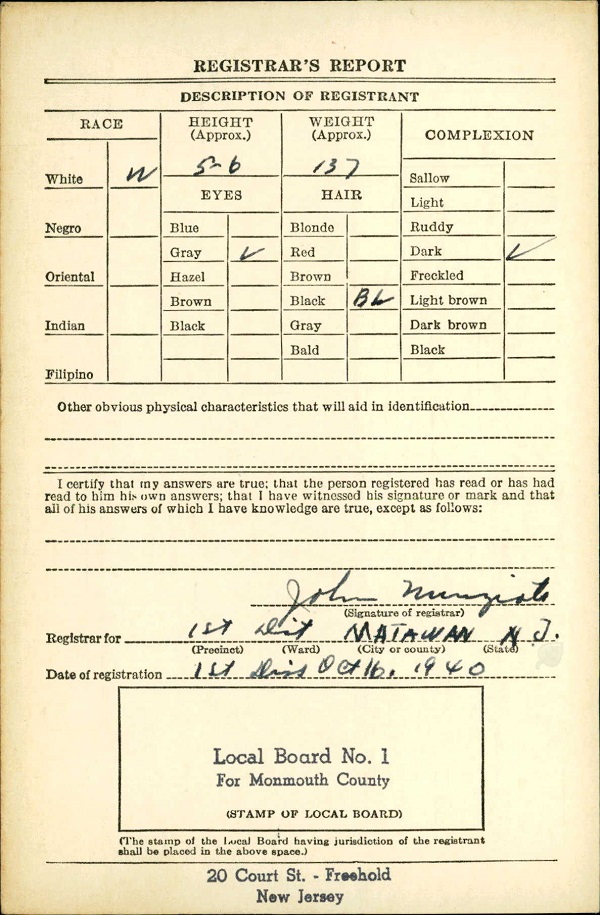 REGISTRAR'S REPORT
DESCRIPTION OF REGISTRANT
RACE
HEIGHT
(Approx.)
WEIGHT
(Approx.)
COMPLEXION
White W
5-6
137
Sallow
EYES
HAIR
Light
Negro
Blue
Blonde
Ruddy
Gray ✓
Red
Dark ✓
Oriental
Hazel
Brown
Freckled
Brown
Black BL
Light brown
Indian
Black
Gray
Dark brown
Bald
Black
Filipino
Other obvious physical characteristics that will aid in identification
I certify that my answers are true; that the person registered has read or has had
read to him his own answers; that I have witnessed his signature or mark and that
all of his answers of which I have knowledge are true, except as follows:
John
(Signature of registrar)
Registrar for 1st Dist MATAWAN N J.
(Precinct) (Ward) (City or county) (State)
Date of registration 1st Diss Oct 16, 1940
Local Board No. 1
For Monmouth County
(STAMP OF LOCAL BOARD)
(The stamp of the Local Board having jurisdiction of the registrant
shall be placed in the above space.)
20 Court St. - Freehold
New Jersey